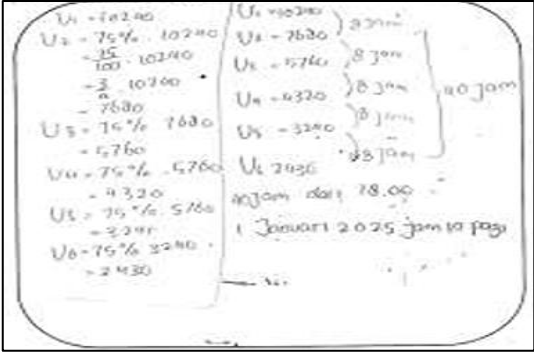 U1 = 10240
U2 = 75% . 10240
= 75/100 . 10240
= 3/4 . 10240
= 7680
U3 = 75% 7680
= 5760
U4 = 75% . 5760
= 4320
U5 = 75% . 5760
= 3240
U6 = 75% 3240
= 2430
U1 = 10240
U2 = 7680
U3 = 5760
U4 = 4320
U5 = 3240
U6 2430
8 jam
8 jam
8 jam
8 jam
8 jam
40 jam
40 jam dari 18.00
1 Januari 2025 jam 10 pagi